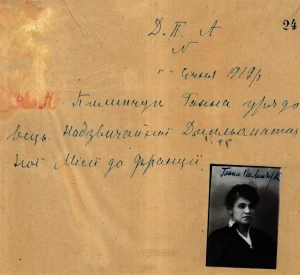 Д. П. А
24
N
" " Січня 1919 р
Пилипчук Ганна урядо
вець Надзвичайної Дипльоматич
ної Місії до Франції.
Ганна Пилипчук